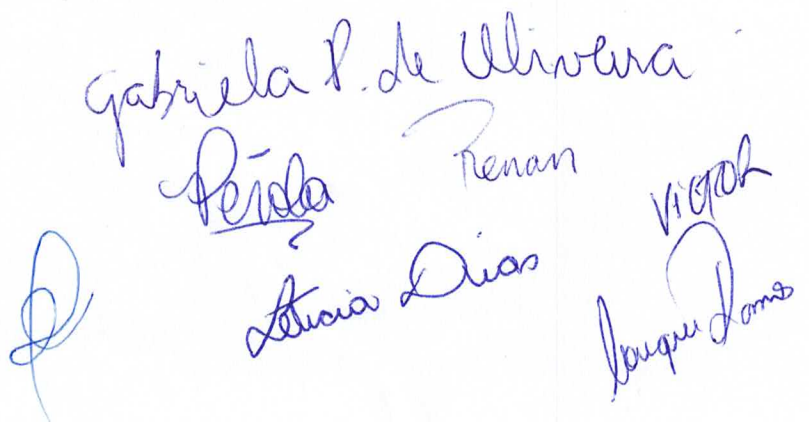 Gabriela P. de Oliveira
Pérola
Renan
Victor
Leticia Dias
Ramos